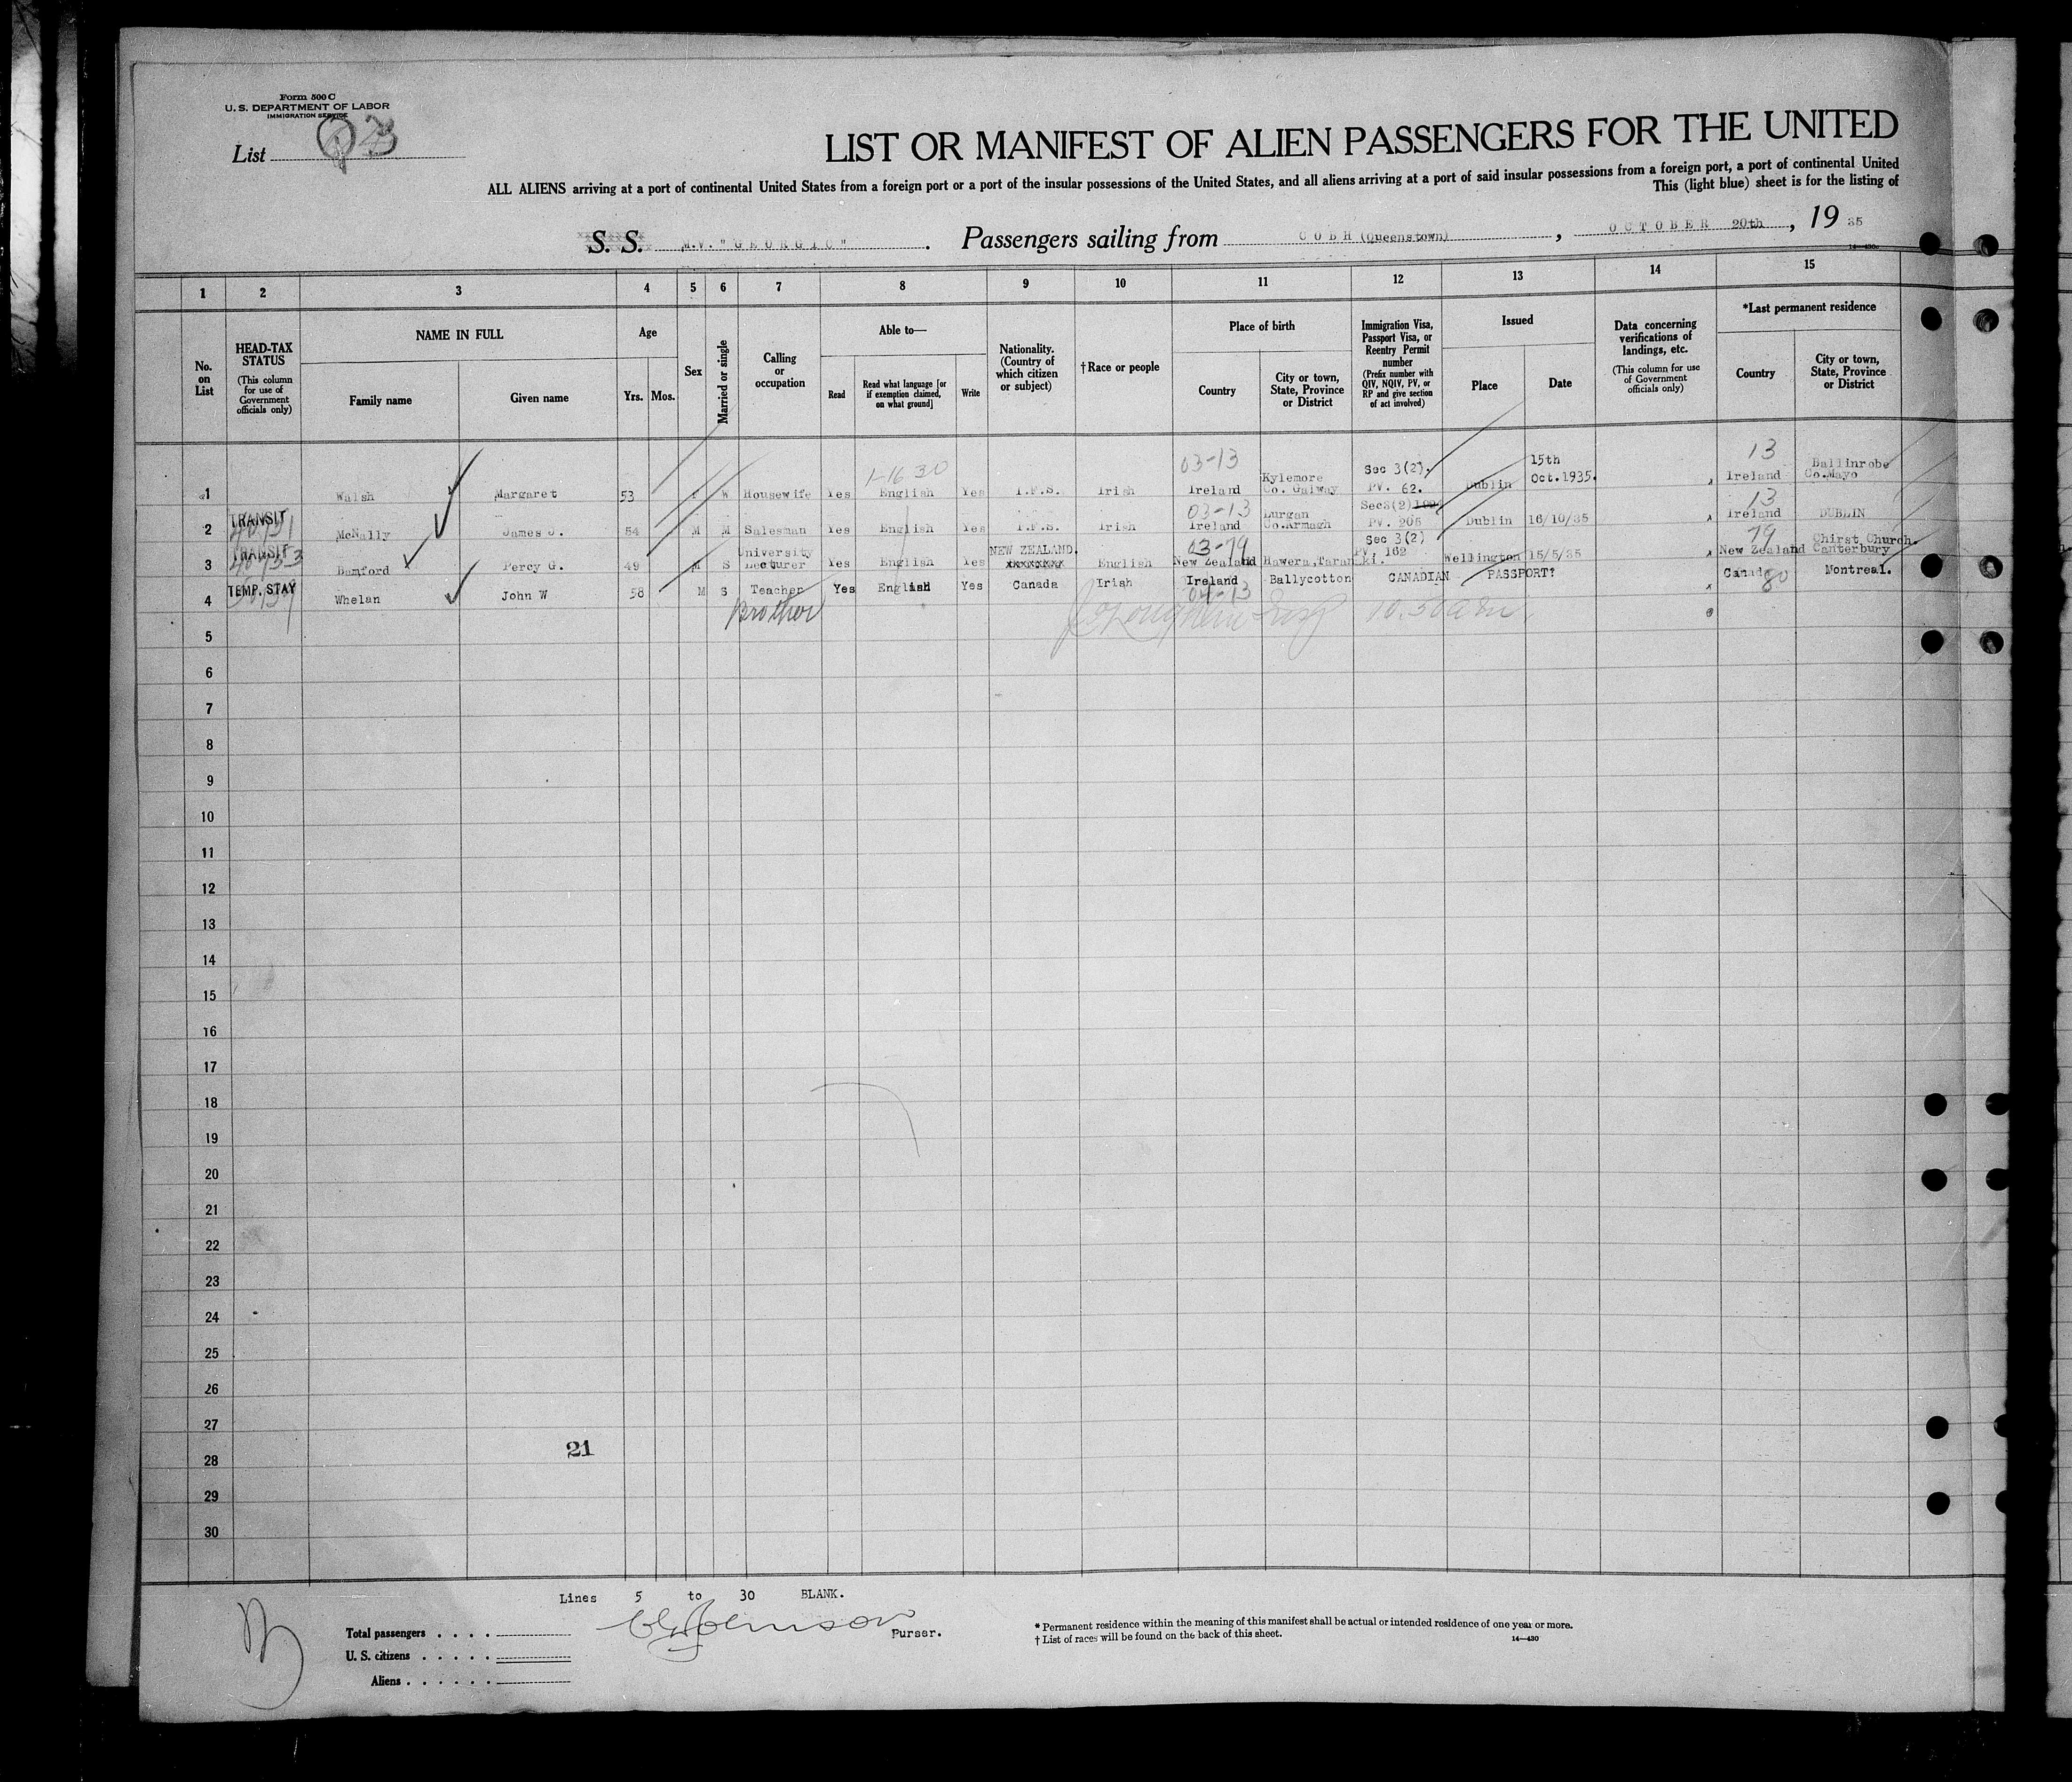 Form 500 C
U. S. DEPARTMENT OF LABOR
IMMIGRATION SERVICE
List
LIST OR MANIFEST OF ALIEN PASSENGERS FOR THE UNITED
ALL ALIENS arriving at a port of continental United States from a foreign port or a port of the insular possessions of the United States, and all aliens arriving at a port of said insular possessions from a foreign port, a port of continental United
This (light blue) sheet is for the listing of
S. S. M.V. "GEORGIC". Passengers sailing from COBH (Queenstown), OCTOBER 20th, 1935
14—430
1 2 3 4 5 6 7 8 9 10 11 12 13 14 15
No. on List
HEAD-TAX STATUS
(This column for use of Government officials only)
NAME IN FULL
Family name
Given name
Age
Yrs. Mos.
Sex
Married or single
Calling or occupation
Able to—
Read
Read what language [or if exemption claimed, on what ground]
Write
Nationality. (Country of which citizen or subject)
†Race or people
Place of birth
Country
City or town, State, Province or District
Immigration Visa, Passport Visa, or Reentry Permit number
(Prefix number with QIV, NQIV, PV, or RP and give section of act involved)
Issued
Place
Date
Data concerning verifications of landings, etc.
(This column for use of Government officials only)
*Last permanent residence
Country
City or town, State, Province or District
1-16 30 03-13 13
1 Walsh Margaret 53 F W Housewife Yes English Yes I.F.S. Irish Ireland Kylemore Co. Galway Sec 3(2). PV. 62. Dublin 15th Oct.1935. Ireland Ballinrobe Co.Mayo
03-13 13
2 TRANSIT McNally James J. 54 M M Salesman Yes English Yes I.F.S. Irish Ireland Lurgan Co.Armagh Sec3(2) PV. 205 Dublin 16/10/35 Ireland DUBLIN
03-79 79
3 TRANSIT Bamford Percy G. 49 M S University Lecturer Yes English Yes NEW ZEALAND. xxxxxxx English New Zealand Hawera,Taranki. Sec 3(2) PV. 162 Wellington 15/5/35 New Zealand Chirst Church. Canterbury
4 TEMP. STAY Whelan John W 58 M S Teacher Yes English Yes Canada Irish Ireland Ballycotton CANADIAN PASSPORT? Canada Montreal.
Brother 04-13 10.30am. 80
5
6
7
8
9
10
11
12
13
14
15
16
17
18
19
20
21
22
23
24
25
26
27
21
28
29
30
Lines 5 to 30 BLANK.
Total passengers . . . .
Purser.
U. S. citizens . . . . .
Aliens . . . . . .
* Permanent residence within the meaning of this manifest shall be actual or intended residence of one year or more.
† List of races will be found on the back of this sheet.
14—430